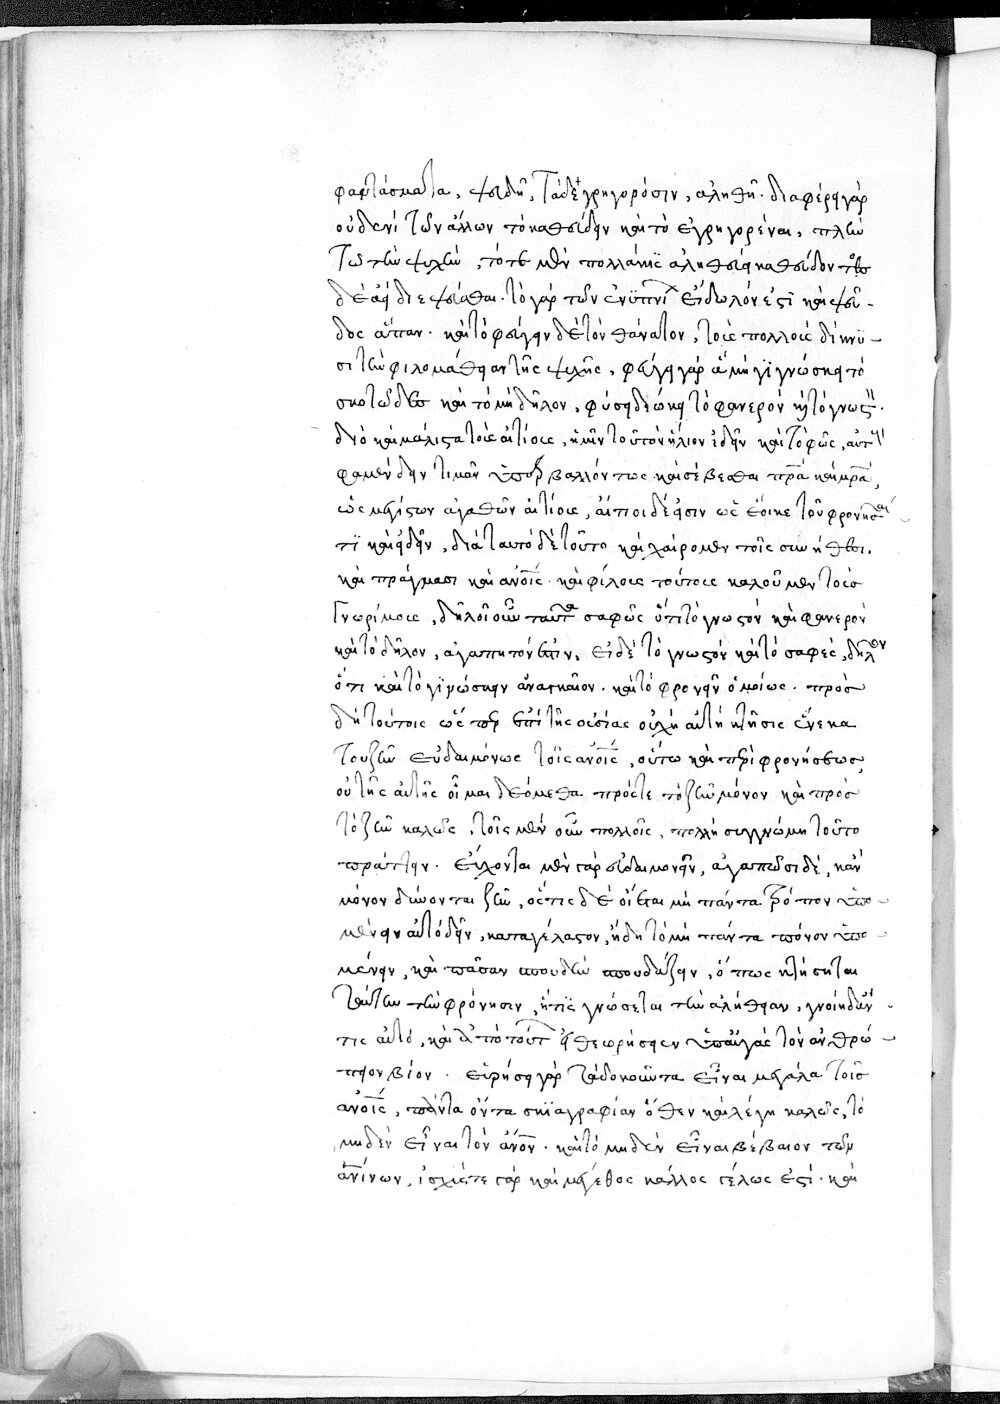 φαντάσματα, ψευδῆ, τὰ δ' ἐγρηγορόσιν, ἀληθῆ· διαφέρει γὰρ
οὐδενὶ τῶν ἄλλων τὸ καθεύδειν καὶ τὸ ἐγρηγορέναι, πλὴν
τῷ τὴν ψυχὴν, τότε μὲν πολλάκις ἀληθεύειν καθεύδοντος
δὲ ἀεὶ διεψεῦσθαι· τὸ γὰρ τῶν ἐνυπνίων εἴδωλόν ἐστι καὶ ψεῦ-
δος ἅπαν· καὶ τὸ φεύγειν δὲ τὸν θάνατον, τοὺς πολλοὺς δείκνυ-
σι τὴν φιλομάθειαν τῆς ψυχῆς, φεύγει γὰρ ἃ μὴ γιγνώσκει τὸ
σκοτῶδες καὶ τὸ μὴ δῆλον, φύσει διώκει τὸ φανερὸν καὶ τὸ γνωστόν·
διὸ καὶ μάλιστα τοὺς αἰτίους, ἡμῖν τοῦ τὸν ἥλιον ἰδεῖν καὶ τὸ φῶς, αὐτ
φαμὲν δεῖν τιμᾶν ὑπερβαλλόντως καὶ σέβεσθαι πρα καὶ μρα,
ὡς μεγίστων ἀγαθῶν αἰτίους, αἴτιοι δέ εἰσιν ὡς ἔοικε τοῦ φρονῆσαί
τι καὶ ἰδεῖν, διὰ ταυτὸ δὲ τοῦτο καὶ χαίρομεν τοῖς συνήθεσι,
καὶ πράγμασι καὶ ἀνοις· καὶ φίλους τούτους καλοῦμεν τοὺς
γνωρίμους, δηλοῖ οὖν ταῦτα σαφῶς ὅτι τὸ γνωστὸν καὶ φανερὸν
καὶ τὸ δῆλον, ἀγαπητόν ἐστιν, εἰ δὲ τὸ γνωστὸν καὶ τὸ σαφὲς, δῆλον
ὅτι καὶ τὸ γιγνώσκειν ἀναγκαῖον· καὶ τὸ φρονεῖν ὁμοίως· πρὸς
δὴ τούτοις ὥσπερ ἐπὶ τῆς οὐσίας οὐχ ἡ αὐτὴ κτῆσις ἕνεκα
τοῦ ζῆν εὐδαιμόνως τοῖς ἀνοις, οὕτω καὶ περὶ φρονήσεως,
οὐ τῆς αὐτῆς οἶμαι δεόμεθα πρός τε τὸ ζῆν μόνον καὶ πρὸς
τὸ ζῆν καλῶς, τοῖς μὲν οὖν πολλοῖς, πολλὴ συγγνώμη τοῦτο
πράττειν· εὔχονται μὲν γὰρ εὐδαιμονεῖν, ἀγαπῶσι δὲ, κἂν
μόνον δύνωνται ζῆν, ὅστις δὲ οἴεται μὴ πάντα τρόπον ὑπο-
μένειν αὐτὸ δεῖν, καταγέλαστον, ἤδη τὸ μὴ πάντα πόνον ὑπο-
μένειν, καὶ πᾶσαν σπουδὴν σπουδάζειν, ὅπως κτήσηται
ταύτην τὴν φρόνησιν, ἥτις γνώσεται τὴν ἀλήθειαν, γνοίη δ' ἄν
τις αὐτὸ, καὶ ἀπὸ τούτ εἰ θεωρήσειεν ὑπ' αὐγὰς τὸν ἀνθρώ-
πειον βίον· εὑρήσει γὰρ τὰ δοκοῦντα εἶναι μεγάλα τοῖς
ἀνοις, πάντα ὄντα σκιαγραφίαν ὅθεν καὶ λέγει καλῶς, τὸ
μηδὲν εἶναι τὸν ἀνον· καὶ τὸ μηδὲν εἶναι βέβαιον τῶν
ἀνίνων, ἰσχύς τε γὰρ καὶ μέγεθος κάλλος γέλως ἐστί· καὶ